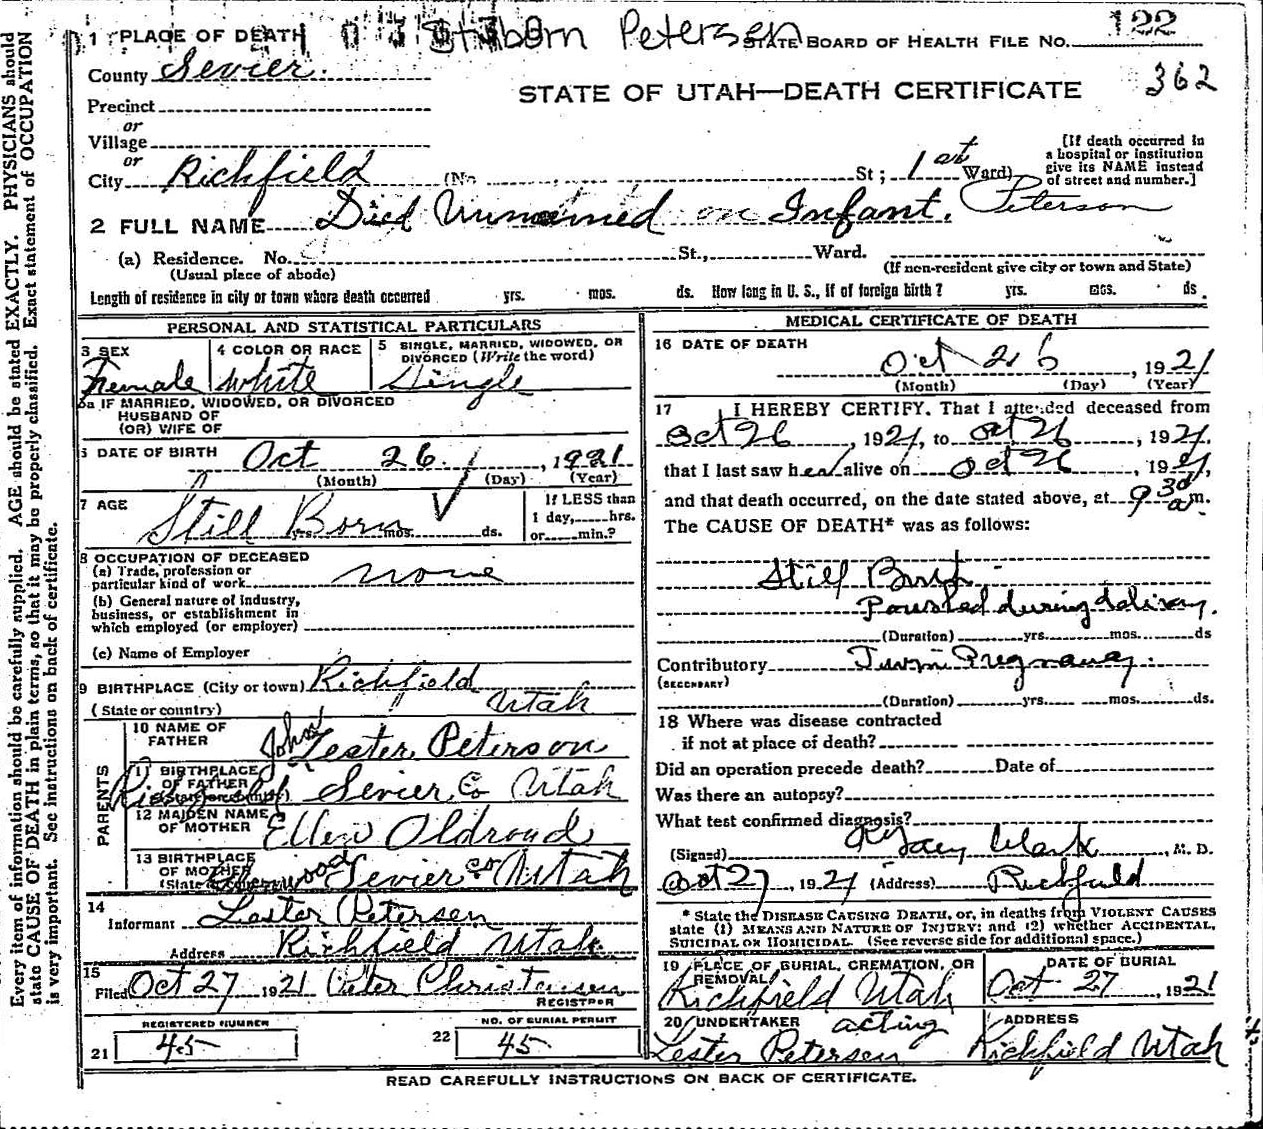 Stillborn Petersen
1 PLACE OF DEATH
STATE BOARD OF HEALTH FILE NO. 122
County Sevier.
STATE OF UTAH—DEATH CERTIFICATE 362
Precinct
or
Village
or
City Richfield (No. St; 1st Ward)
[If death occurred in
a hospital or institution
give its NAME instead
of street and number.]
2 FULL NAME Died Unnamed an Infant. Peterson
(a) Residence. No. St., Ward.
(Usual place of abode) (If non-resident give city or town and State)
Length of residence in city or town where death occurred yrs. mos. ds. How long in U. S., if of foreign birth? yrs. mos. ds.
PERSONAL AND STATISTICAL PARTICULARS
3 SEX Female
4 COLOR OR RACE White
5 SINGLE, MARRIED, WIDOWED, OR
DIVORCED (Write the word)
Single
5a IF MARRIED, WIDOWED, OR DIVORCED
HUSBAND OF
(OR) WIFE OF
6 DATE OF BIRTH Oct 26, 1921
(Month) (Day) (Year)
7 AGE Still Born yrs. mos. ds.
If LESS than
1 day, hrs.
or min.?
8 OCCUPATION OF DECEASED
(a) Trade, profession or
particular kind of work none
(b) General nature of industry,
business, or establishment in
which employed (or employer)
(c) Name of Employer
9 BIRTHPLACE (City or town) Richfield
(State or country) Utah
PARENTS
10 NAME OF
FATHER John Lester Peterson
11 BIRTHPLACE
OF FATHER
(State or country) Richfield Sevier Co Utah
12 MAIDEN NAME
OF MOTHER Ellen Oldroyd
13 BIRTHPLACE
OF MOTHER
(State Glenwood Sevier Co Utah
14
Informant Lester Petersen
Address Richfield Utah
15
Filed Oct 27 1921 Christensen
REGISTRAR
REGISTERED NUMBER
21 45
NO. OF BURIAL PERMIT
22 45
MEDICAL CERTIFICATE OF DEATH
16 DATE OF DEATH
Oct 26, 1921
(Month) (Day) (Year)
17 I HEREBY CERTIFY. That I attended deceased from
Oct 26, 1921, to Oct 26, 1921.
that I last saw her alive on Oct 26, 1921,
and that death occurred, on the date stated above, at 9 30 a.m.
The CAUSE OF DEATH* was as follows:
Still Birth
Perished during delivery.
(Duration) yrs. mos. ds
Contributory Twin Pregnancy.
(SECONDARY)
(Duration) yrs. mos. ds.
18 Where was disease contracted
if not at place of death?
Did an operation precede death? Date of
Was there an autopsy?
What test confirmed diagnosis?
(Signed) Clark, M. D.
Oct 27, 1921 (Address) Richfield
* State the DISEASE CAUSING DEATH, or, in deaths from VIOLENT CAUSES
state (1) MEANS AND NATURE OF INJURY; and (2) whether ACCIDENTAL,
SUICIDAL OR HOMICIDAL. (See reverse side for additional space.)
19 PLACE OF BURIAL, CREMATION, OR
REMOVAL
Richfield Utah
DATE OF BURIAL
Oct 27, 1921
20 UNDERTAKER acting
Lester Petersen
ADDRESS
Richfield Utah
READ CAREFULLY INSTRUCTIONS ON BACK OF CERTIFICATE.
Every item of information should be carefully supplied. AGE should be stated EXACTLY. PHYSICIANS should
state CAUSE OF DEATH in plain terms, so that it may be properly classified. Exact statement of OCCUPATION
is very important. See instructions on back of certificate.